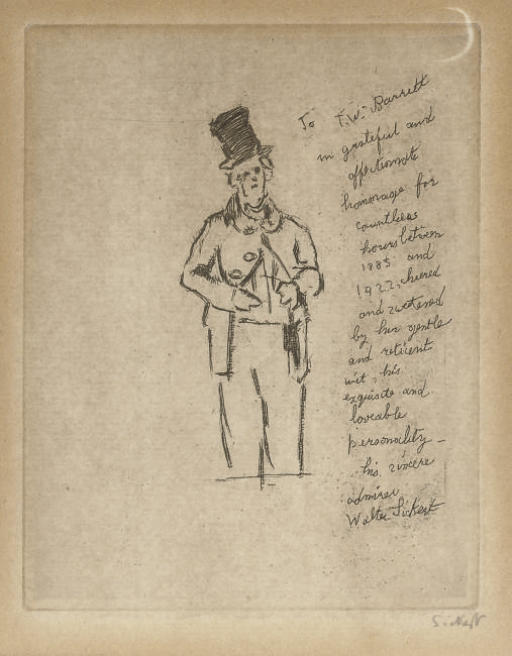 To T.W. Barrett
in grateful and
affectionate
homage for
countless
hours between
1885 and
1922, cheered
and sweetened
by his gentle
and reticent
wit, his
exquisite and
loveable
personality —
his sincere
admirer
Walter Sickert
Sickert